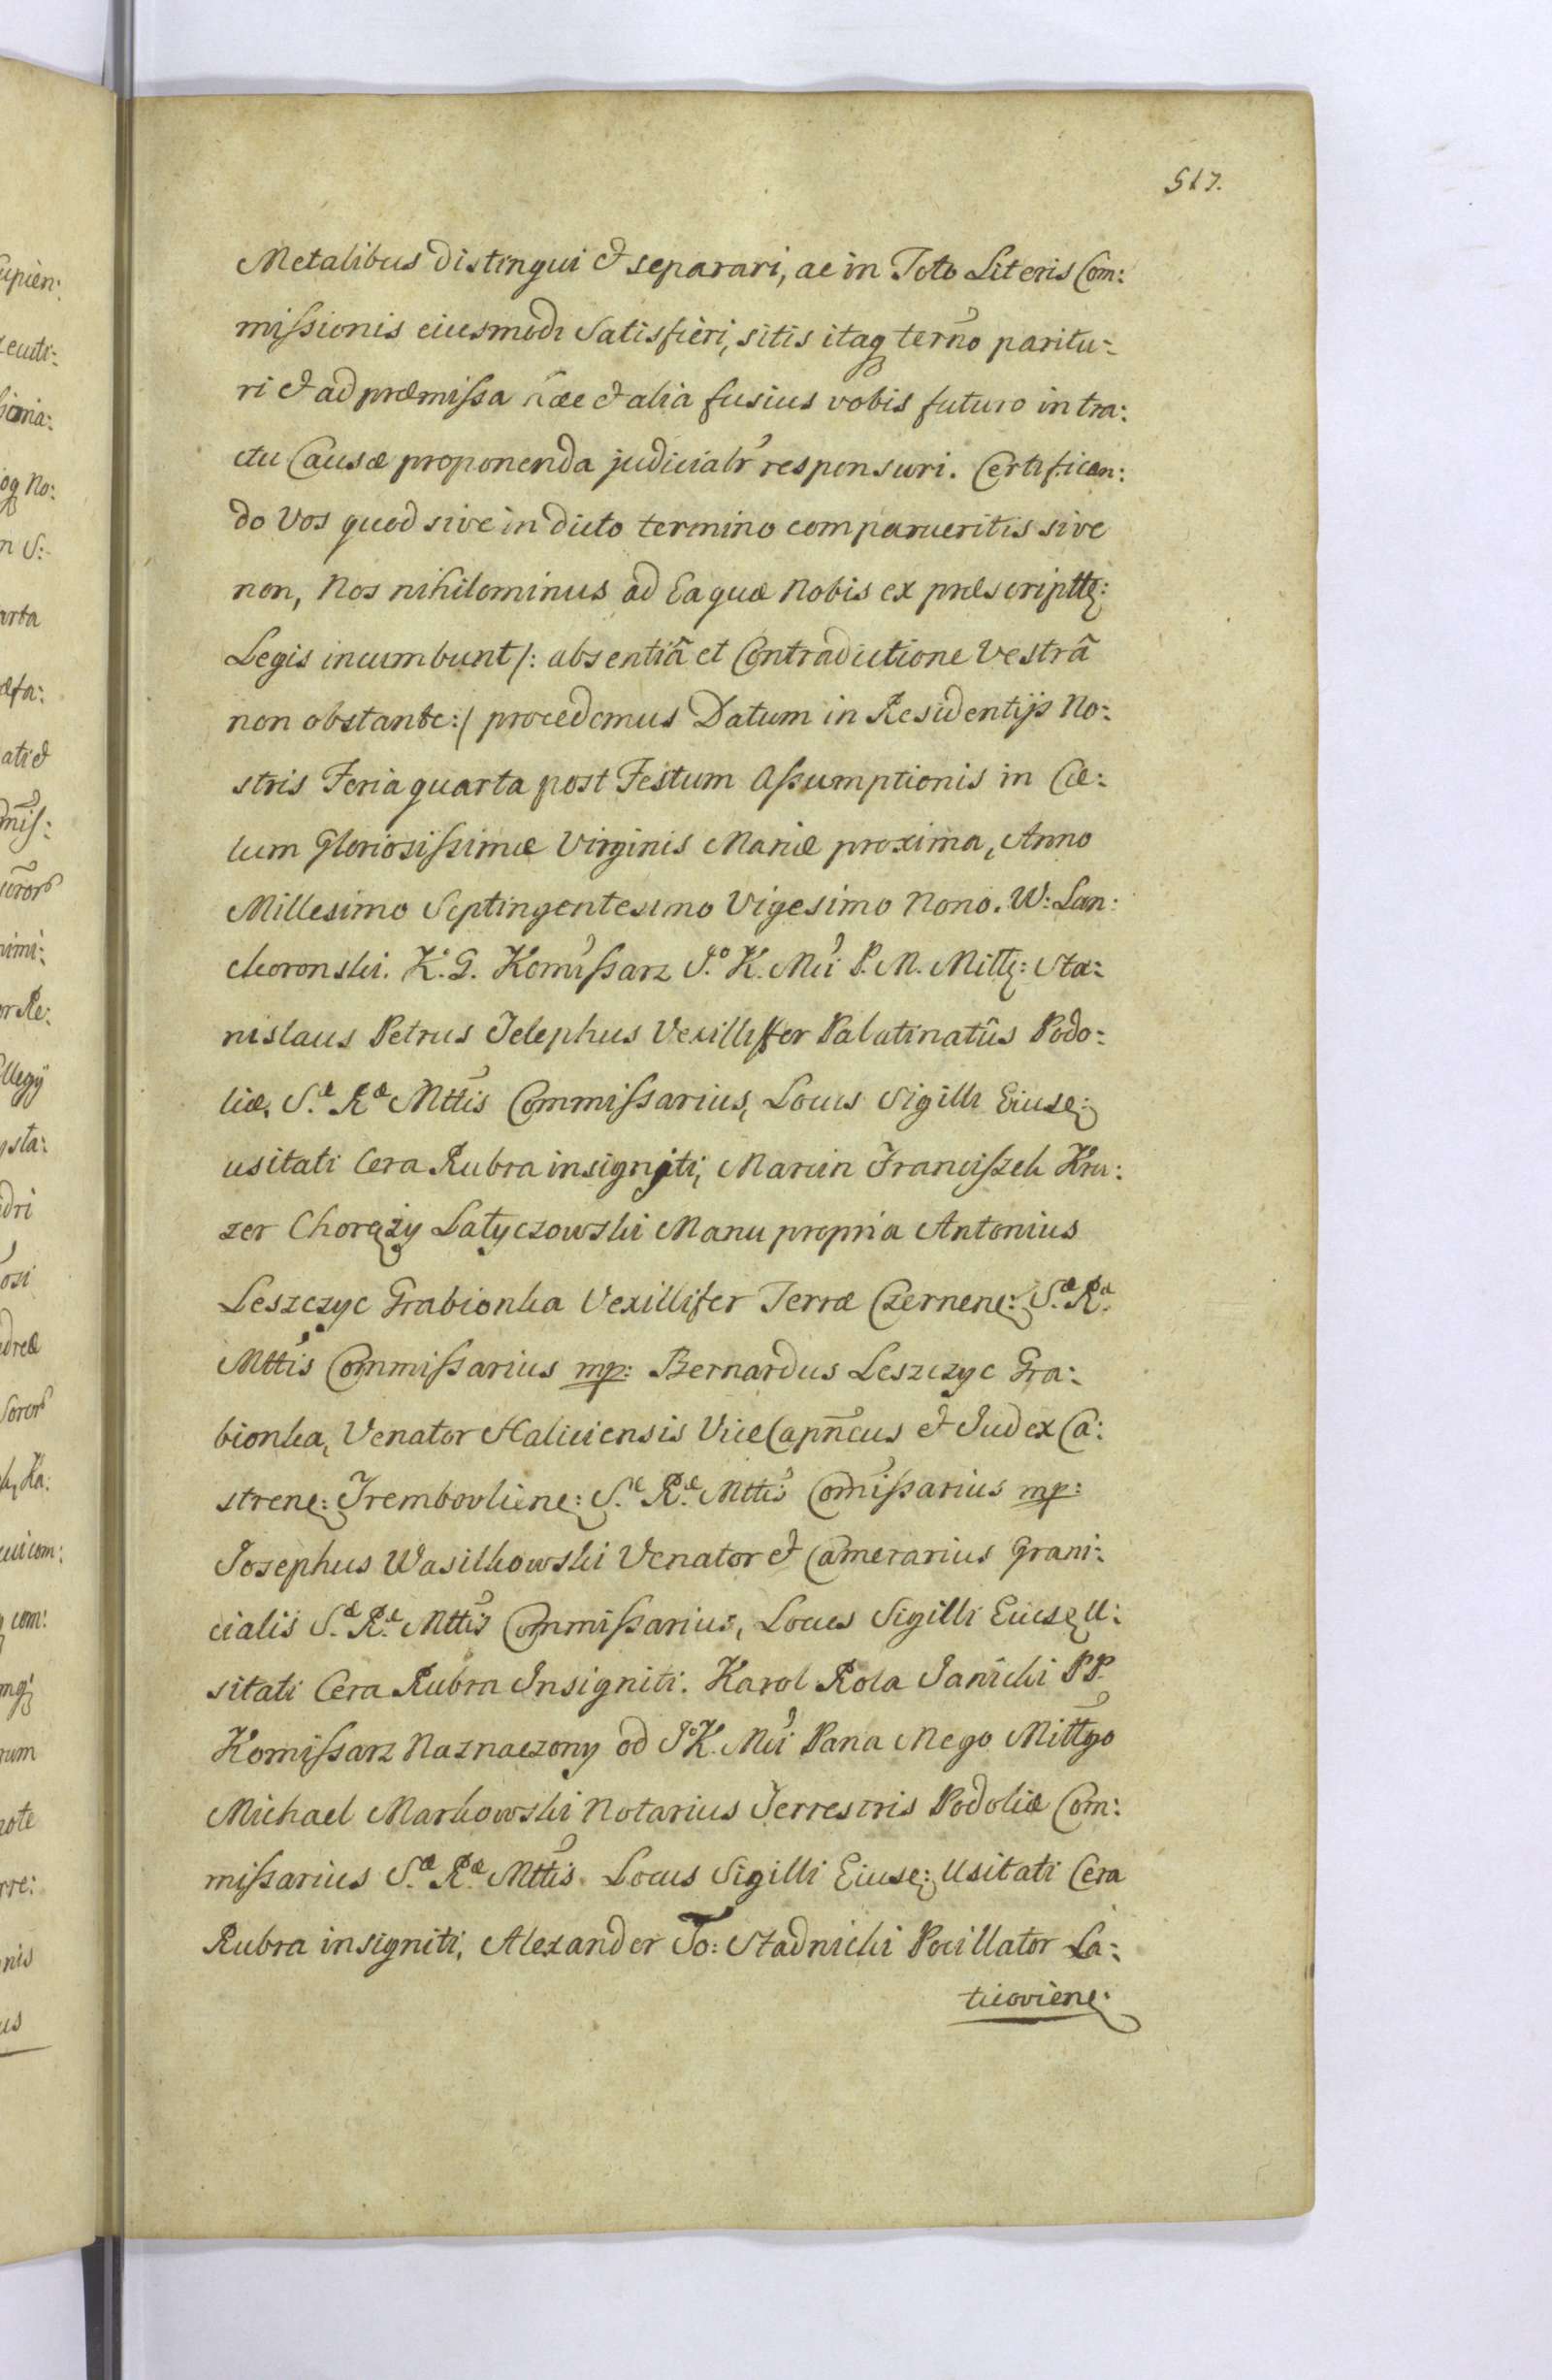 517.
Metalibus distingui & separari, ac in Toto Literis Com:
mißionis eiusmodi Satisfieri, sitis itaq terño paritu:
ri & ad præmißa hæc & alia fusius vobis futuro in tra:
ctu Causæ proponenda judicialr responsuri. Certifican:
do Vos quod sive in dicto termino comparueritis sive
non, Nos nihilominus ad Ea quæ Nobis ex præscriptt:
Legis incumbunt /: absentiâ et Contradictione Vestrâ
non obstante :/ procedemus Datum in Residentijs No:
stris Feria quarta post Festum Aßumptionis in Cæ:
lum Gloriosißimæ Virginis Mariæ proxima, Anno
Millesimo Septingentesimo Vigesimo Nono. W: Lan:
ckoronski. K. G. Komißarz J.º K. Mci P. M. Mitt: Sta:
nislaus Petrus Jelephus Vexillifer Palatinatûs Podo:
liæ, S.æ R.æ Mttis Commißarius, Locus Sigilli Eiusę:
usitati Cera Rubra insigniti, Marcin Francißek Kru:
zer Chorąży Latyczowski Manu propria Antonius
Leszczyc Grabionka Vexillifer Terræ Czernenę: S.æ R.æ
Mttis Commißarius mp: Bernardus Leszczyc Gra:
bionka, Venator Haliciensis Vice Capñeus & Judex Ca:
strenę: Trembovlienę: S.æ R.æ Mttis Comißarius mp:
Josephus Wasilkowski Venator & Camerarius Grani:
cialis S.æ R.æ Mttis Commißarius, Locus Sigilli Eiusę U:
sitati Cera Rubra Insigniti. Karol Rola Janicki PP.
Komißarz Naznaczony od J.º K. Mci Pana Mego Mittgo
Michael Markowski Notarius Terrestris Podoliæ Com:
mißarius S.æ R.æ Mttis. Locus Sigilli Eiusę: Usitati Cera
Rubra insigniti, Alexander Jo: Stadnicki Pocillator La:
ticovienę: